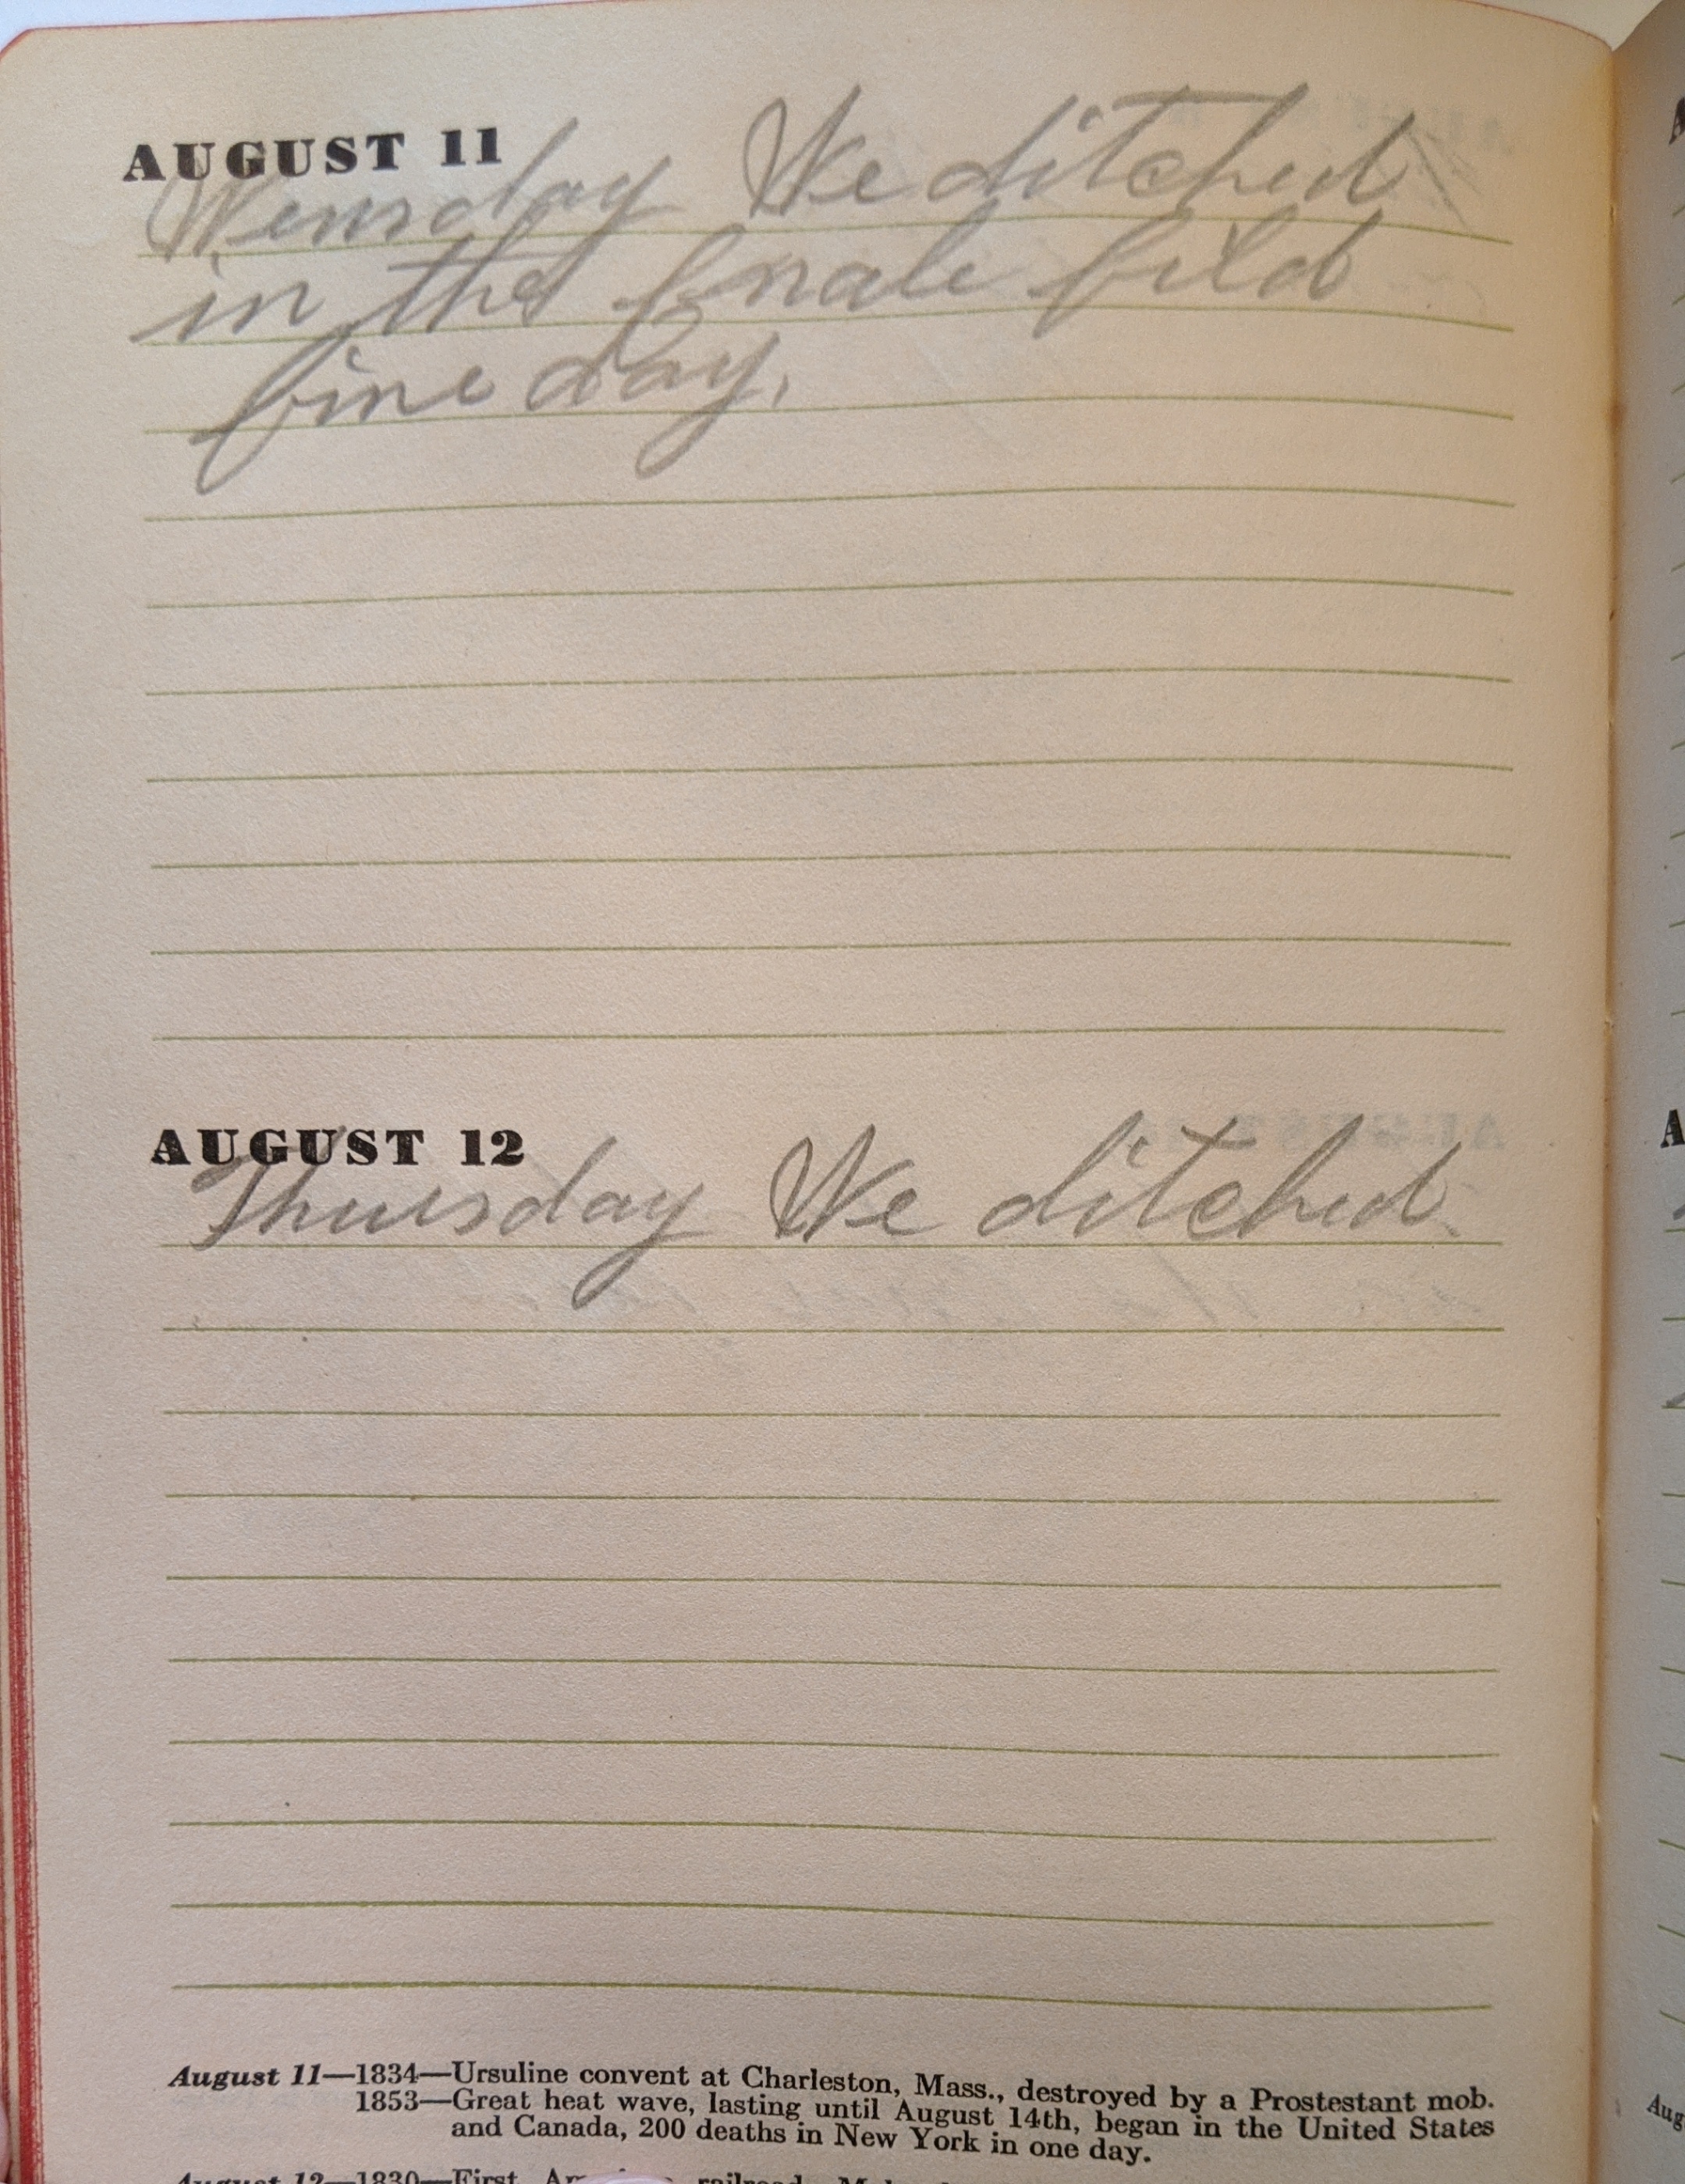 AUGUST 11
Wensday We ditched
in the fild
fine day.
AUGUST 12
Thursday We ditched
August 11—1834—Ursuline convent at Charleston, Mass., destroyed by a Prostestant mob.
1853—Great heat wave, lasting until August 14th, began in the United States
and Canada, 200 deaths in New York in one day.
August 12—1830—First